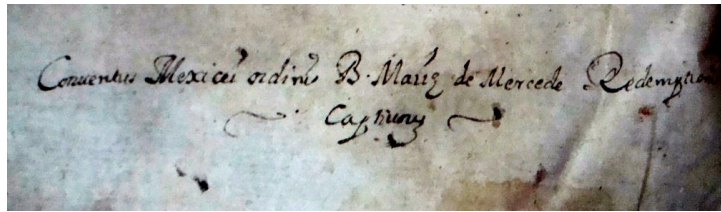 Conventus Mexicei ordinis B. Mariȩ de Mercede Redemption
Captivoȓ